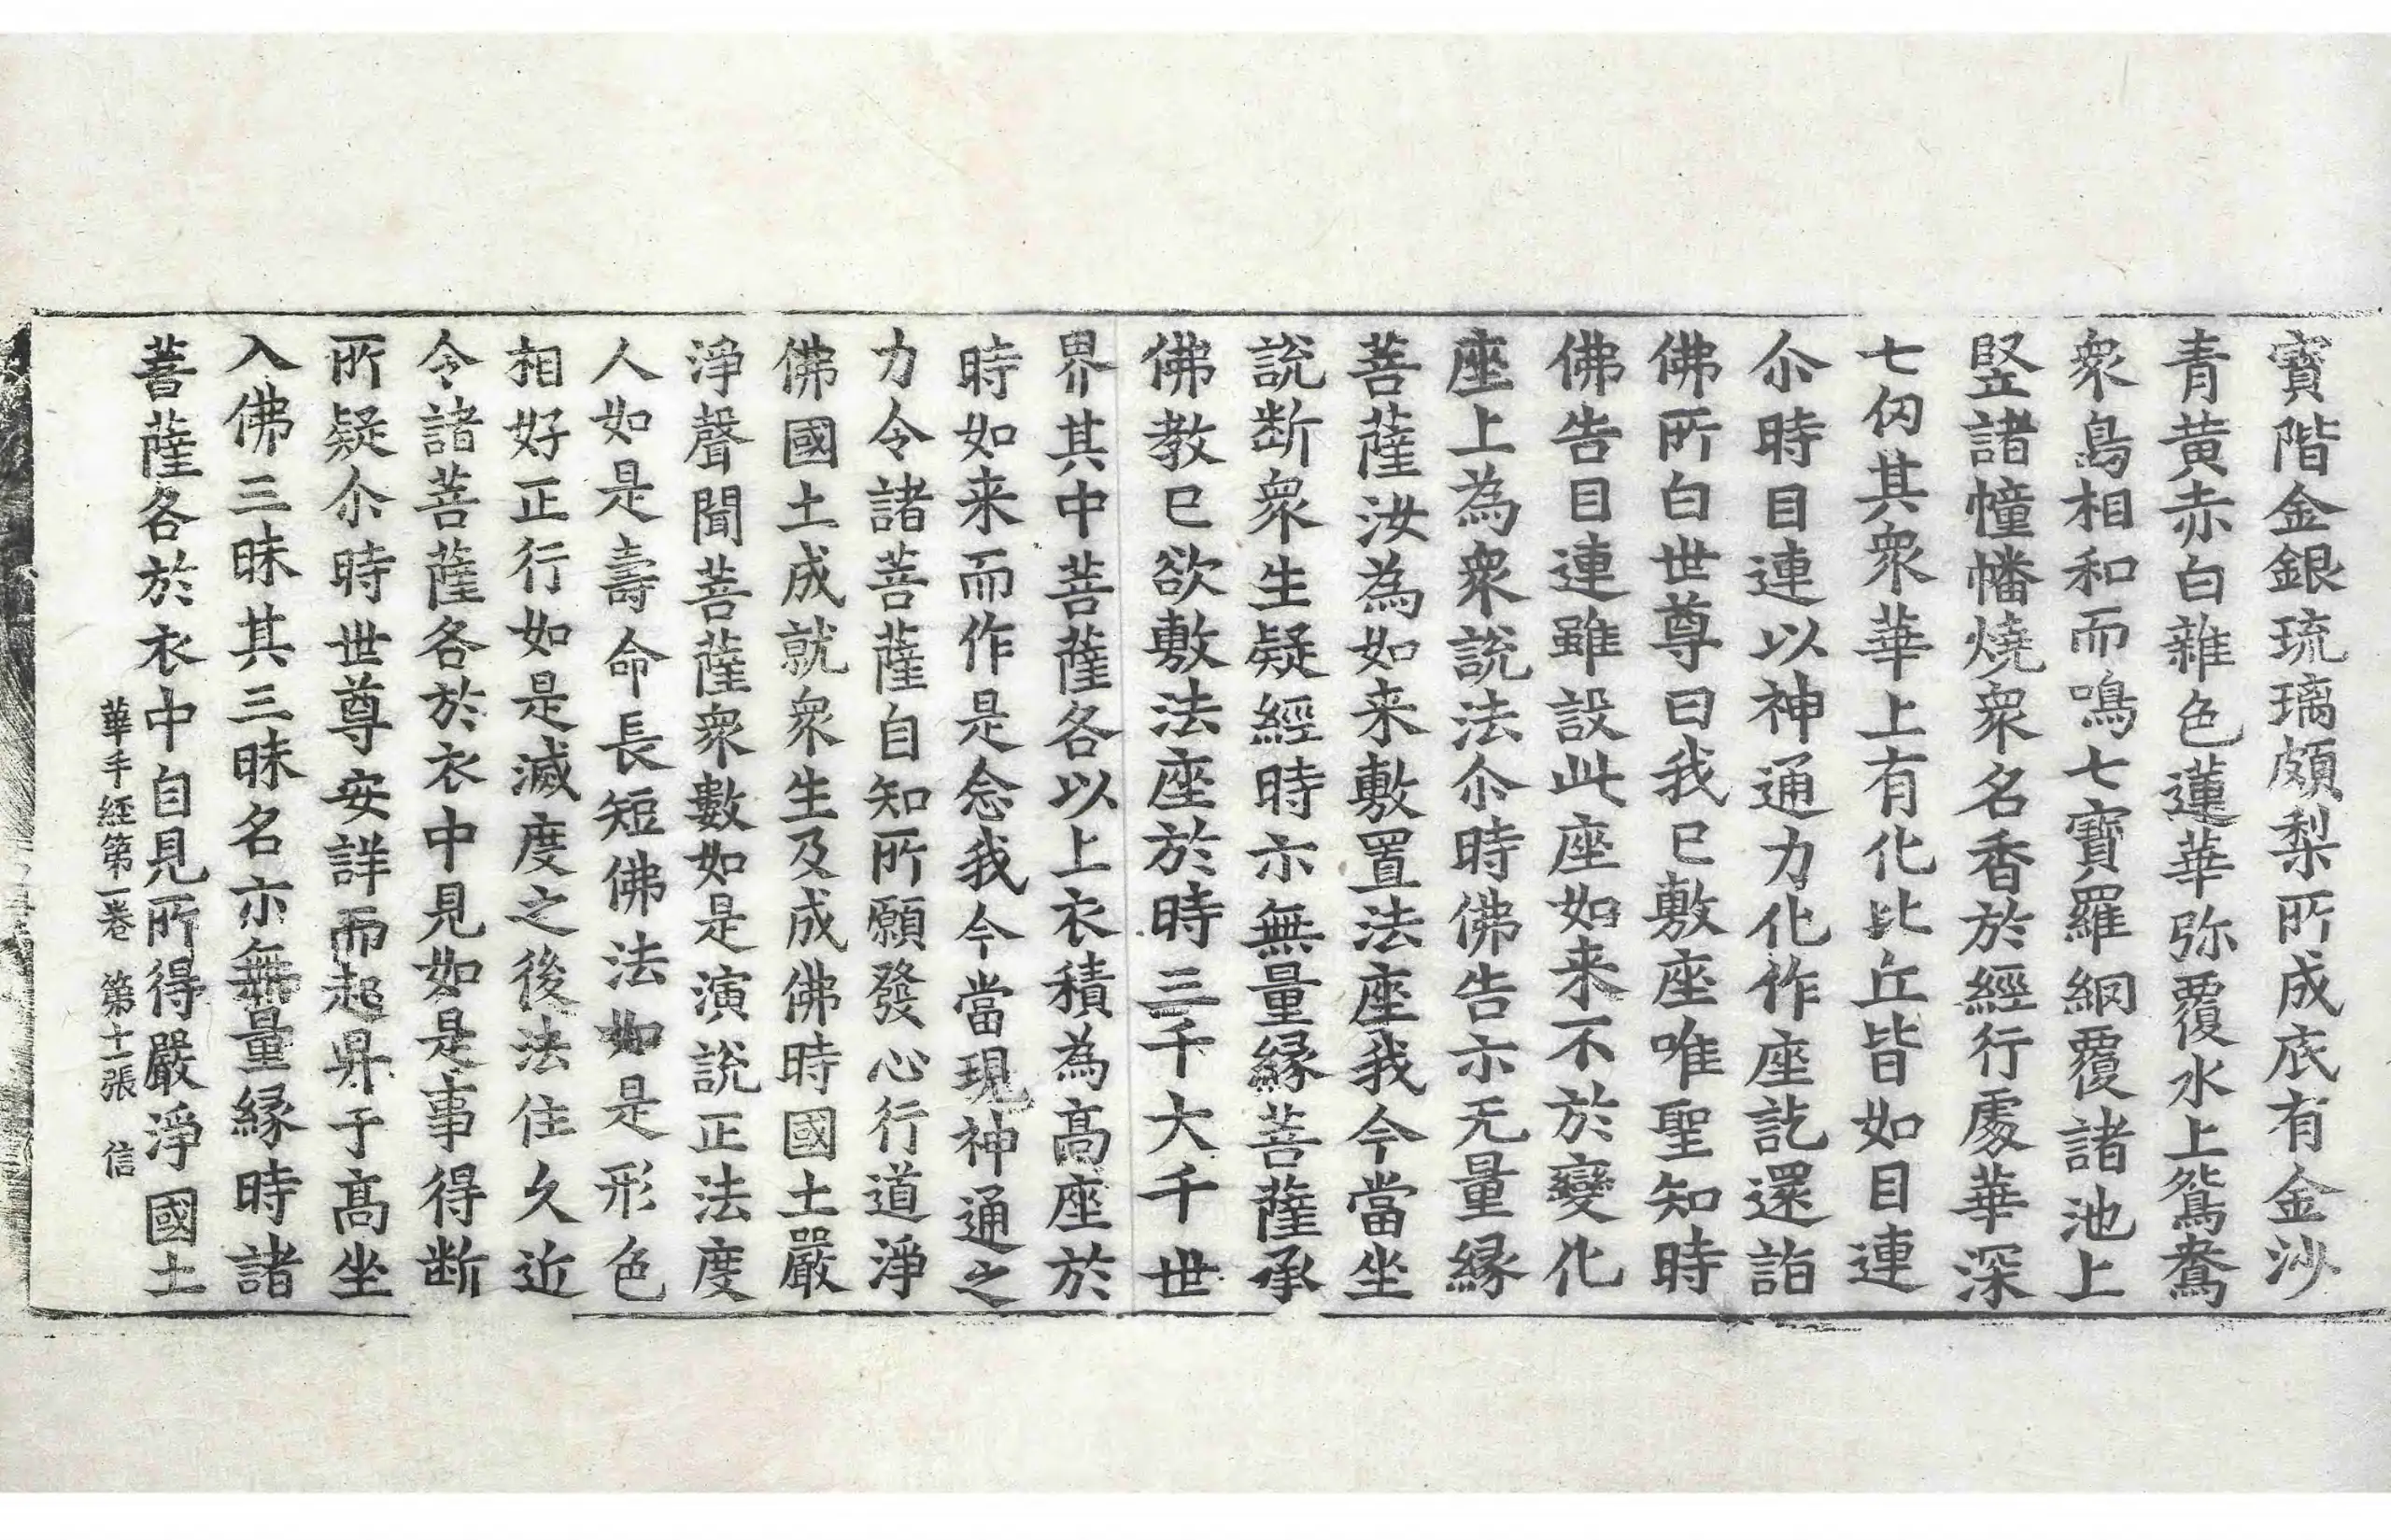 寶階金銀琉璃頗梨所成底有金沙
青黄赤白雜色蓮華弥覆水上鴛鴦
衆鳥相和而鳴七寶羅網覆諸池上
竪諸幢幡燒衆名香於經行處華深
七仞其衆華上有化比丘皆如目連
尒時目連以神通力化作座訖還詣
佛所白世尊曰我已敷座唯聖知時
佛告目連雖設此座如来不於變化
座上為衆說法尒時佛告亦无量緣
菩薩汝為如来敷置法座我今當坐
說断衆生疑經時亦無量緣菩薩承
佛教已欲敷法座於時三千大千世
界其中菩薩各以上衣積為髙座於
時如来而作是念我今當現神通之
力令諸菩薩自知所願發心行道淨
佛國土成就衆生及成佛時國土嚴
淨聲聞菩薩衆數如是演說正法度
人如是壽命長短佛法如是形色
相好正行如是滅度之後法住久近
令諸菩薩各於衣中見如是事得断
所疑尒時世尊安詳而起昇于髙坐
入佛三昧其三昧名亦無量緣時諸
菩薩各於衣中自見所得嚴淨國土
華手經第一卷 第十一張 信